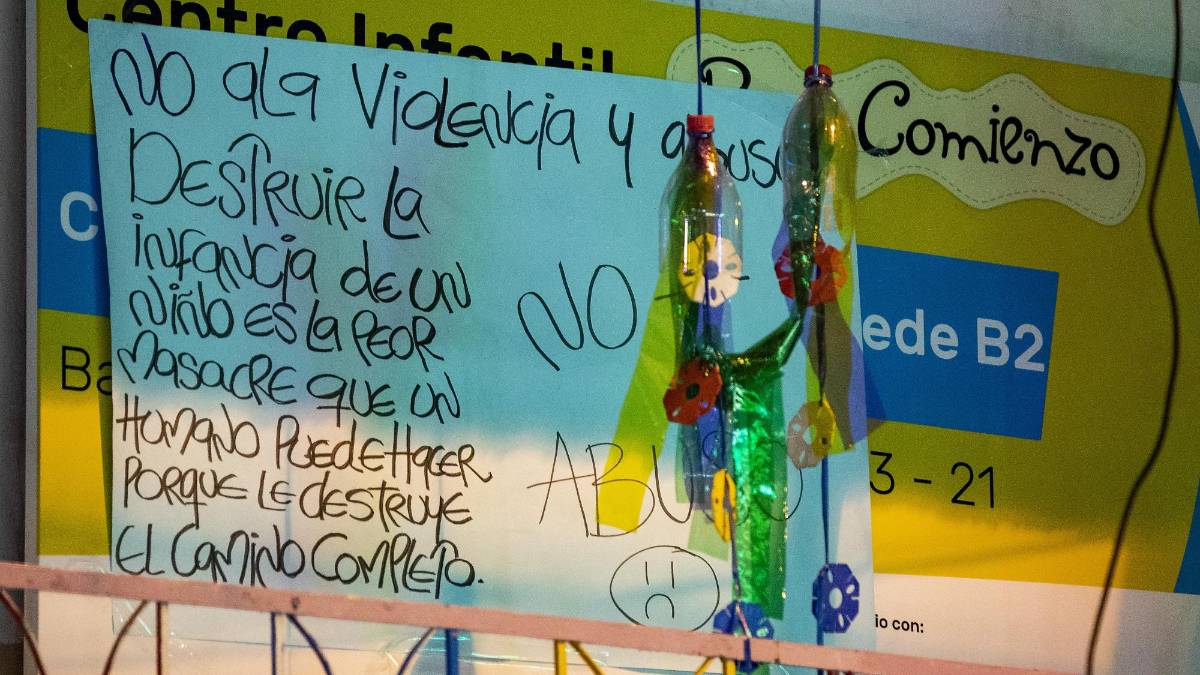 Centro Infantil
Comienzo
NO a la Violencia y abuso
DESTRUIR La
infancia de un
Niño es la peor
masacre que un
Humano puede Hacer
porque le destruye
el camino completo.
NO
ABUSO
ede B2
3 - 21
io con: